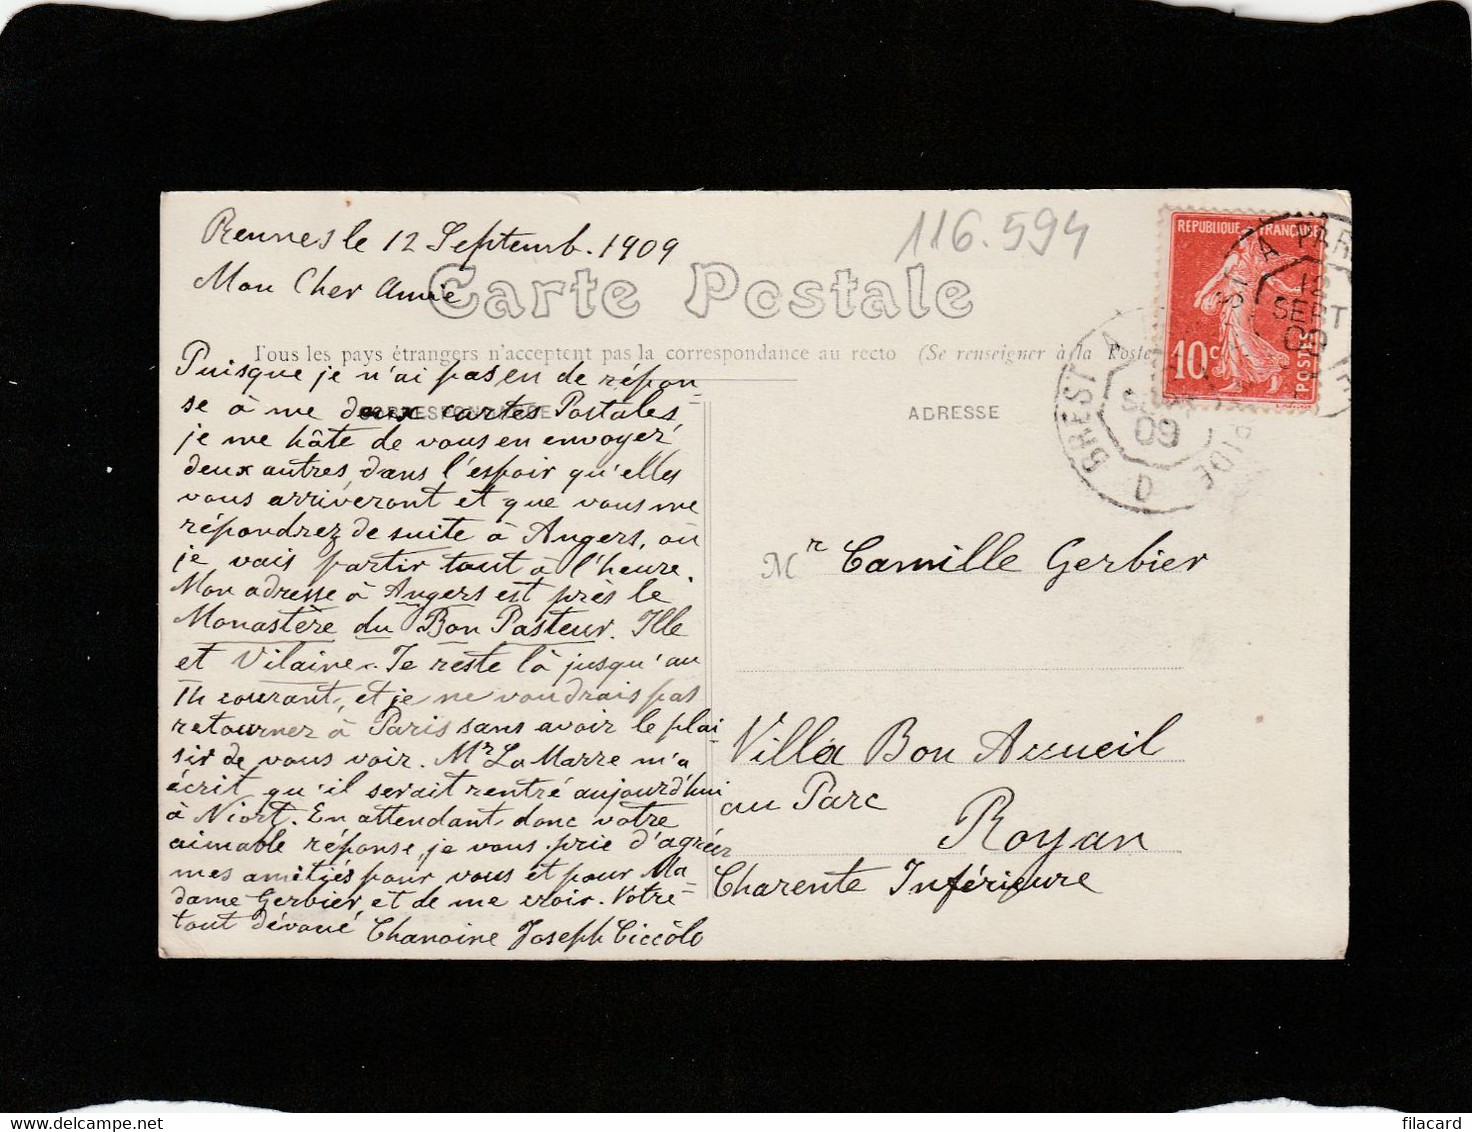 Rennes le 12 Septemb. 1909
116.594
Mon Cher Amie
Carte Postale
Tous les pays étrangers n'acceptent pas la correspondance au recto (Se renseigner à la Poste
CORRESPONDANCE
ADRESSE
Puisque je n'ai pas en de répon=
se à me deux cartes Postales,
je me hâte de vous en envoyer
deux autres, dans l'espoir qu'elles
vous arriveront et que vous me
répondrez de suite à Angers, où
je vais partir tout à l'heure.
Mon adresse à Angers est près le
Monastère du Bon Pasteur. Ille
et Vilaine. Je reste là jusqu'au
courant, et je ne voudrais pas
retourner à Paris sans avoir le plai=
sir de vous voir. Mr La Marre m'a
écrit qu'il serait rentré aujourd'hui
à Niort. En attendant donc votre
aimable réponse, je vous prie d'agréer
mes amitiés pour vous et pour Ma=
dame Gerbier et de me croir. Votre
tout dévoué Chanoine Joseph Ciccòlo
Mr Camille Gerbier
Villa Bon Accueil
au Parc
Royan
Charente Inférieure
REPUBLIQUE FRANÇAISE
10c
POSTES
BREST A
09
D
A PAR
12
SEPT
09
filacard